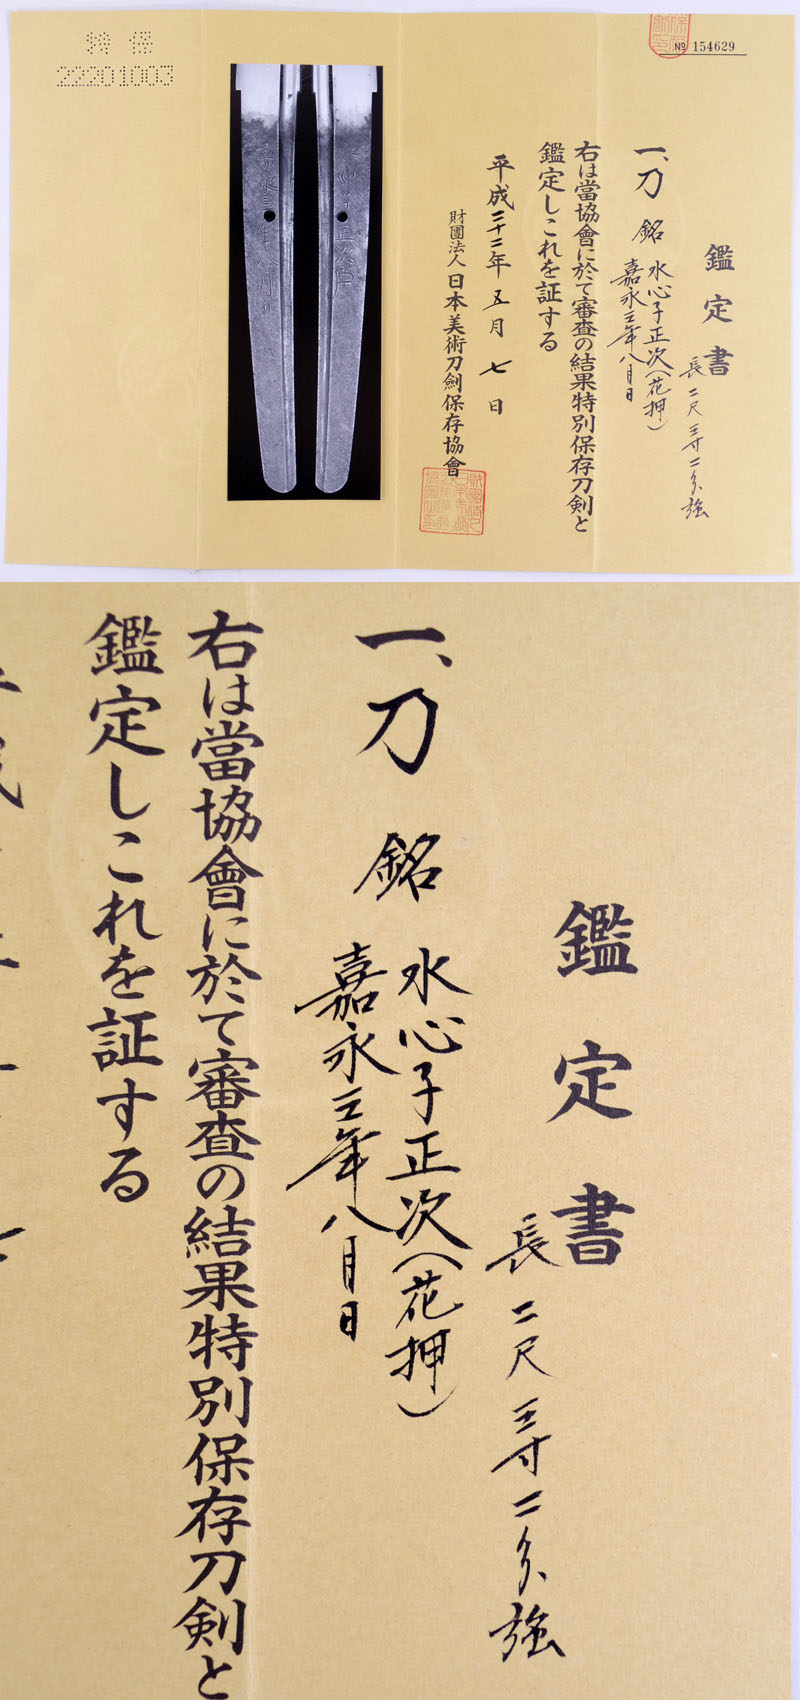 特保
22201003
No 154629
鑑定書
長二尺三寸二分強
一、刀 銘 水心子正次（花押）
嘉永三年八月日
右は當協會に於て審査の結果特別保存刀剣と
鑑定しこれを証する
平成二十二年五月七日
財團法人 日本美術刀劍保存協會
鑑定書
長二尺三寸二分強
一、刀 銘 水心子正次（花押）
嘉永三年八月日
右は當協會に於て審査の結果特別保存刀剣と
鑑定しこれを証する